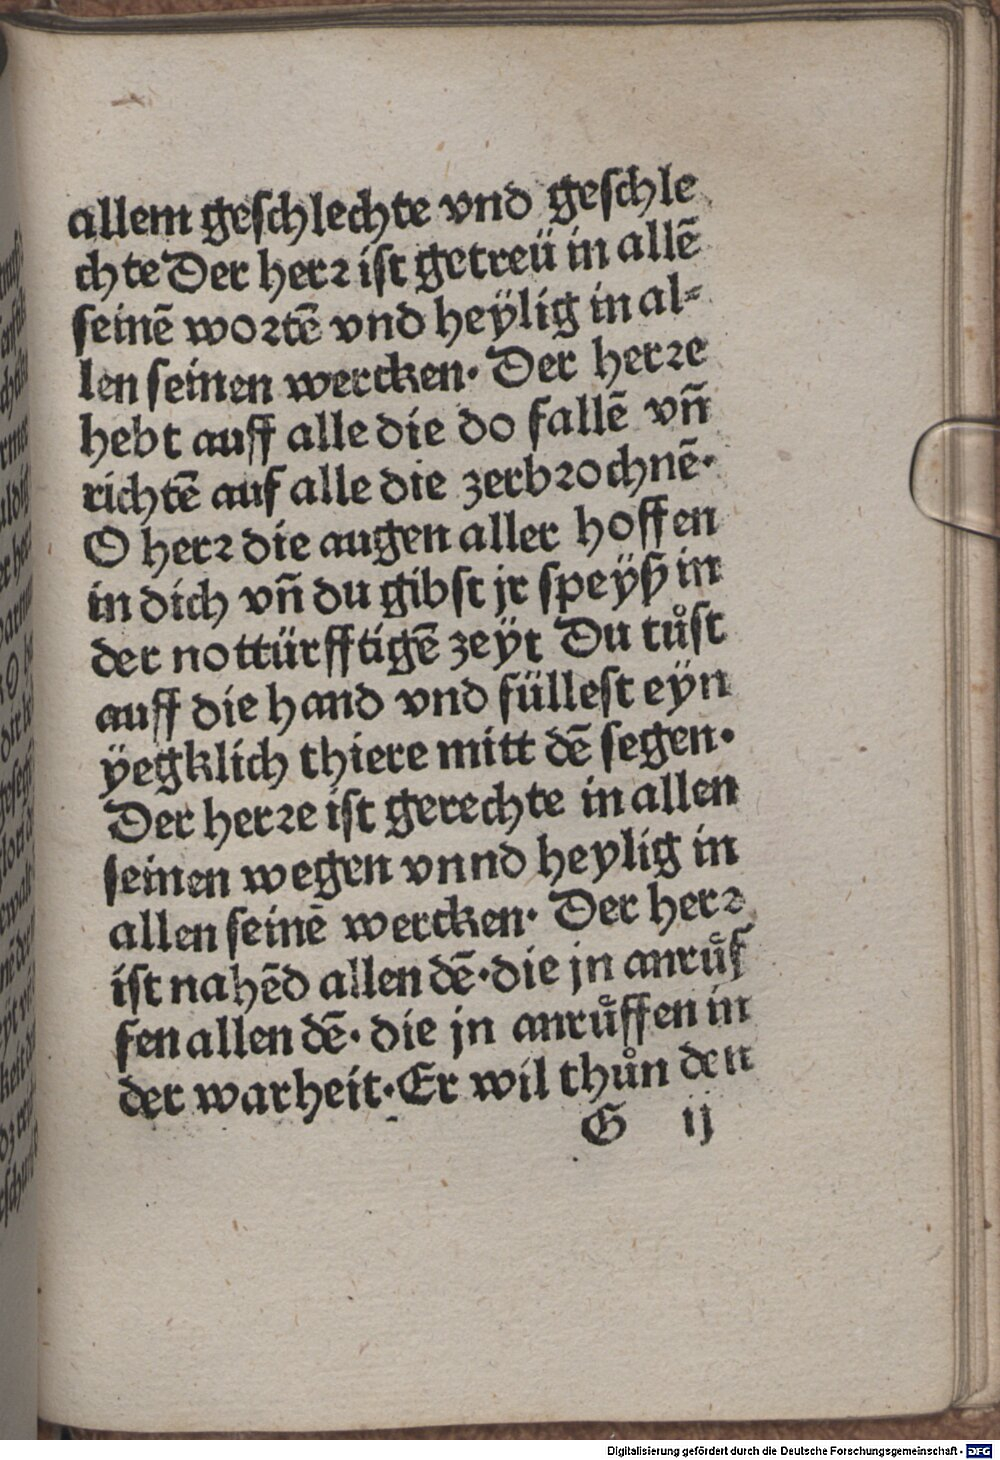 allem geschlechte vnd geschle
chte Der herr ist getreü in allē
seinē wortē vnd heÿlig in al⸗
len seinen wercken· Der herre
hebt auff alle die do fallē vn̄
richtē auf alle die zerbrochnē·
O herr die augen aller hoffen
in dich vn̄ du gibst jr speÿß in
der nottürfftigē zeÿt Du tůst
auff die hand vnd füllest eÿn
ÿegklich thiere mitt dē segen·
Der herre ist gerechte in allen
seinen wegen vnnd heylig in
allen seinē wercken· Der herr
ist nahēd allen dē·die jn anrůf
fen allen dē· die jn anrůffen in
der warheit·Er wil thůn den
G ij
Digitalisierung gefördert durch die Deutsche Forschungsgemeinschaft - DFG